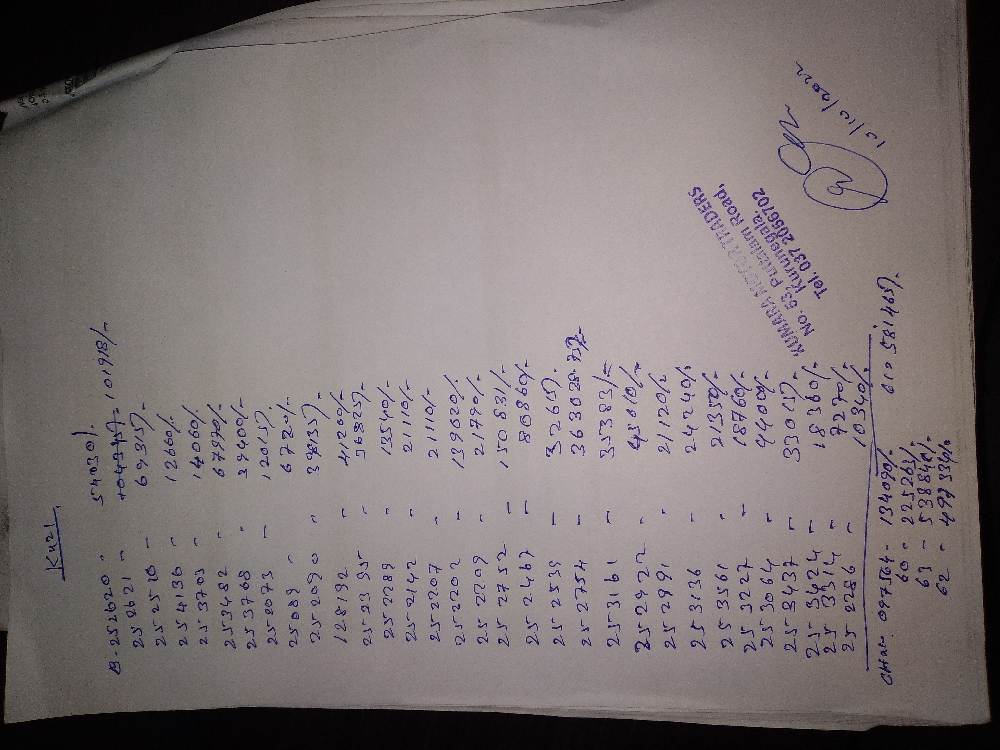 Ku21
B- 252620 - 54030/-
252621 - 104345/- 101918/-
252510 - 69315/-
254136 - 12660/-
253703 - 14060/-
253482 - 67970/-
253768 - 39400/-
252073 - 12015/-
25089 - 6720/-
252090 - 39135/-
128192 - 41200/-
252395 - 56825/-
252289 - 13540/-
252142 - 21110/-
252207 - 21110/-
252202 - 139020/-
252209 - 21790/-
252752 - 150831/-
252467 - 80860/-
252539 - 32615/-
252754 - 363028.75/-
253161 - 35383/-
252922 - 45010/-
252991 - 21120/-
253136 - 24240/-
253561 - 21350/-
253227 - 18760/-
253064 - 44000/-
253437 - 33015/-
253424 - 18360/-
253314 - 7270/-
252286 - 10340/-
097564 - 134090/- 581465/-
60 - 225265/-
63 - 53884/-
62 - 497334/-
KUMARA MOTOR TRADERS
No. 53, Puttalam Road,
Kurunegala.
Tel. 037 2056702